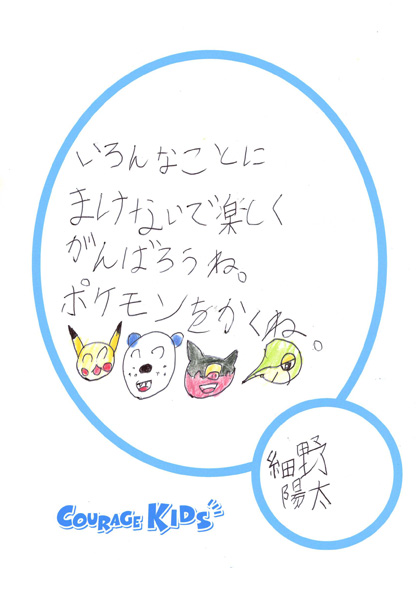 いろんなことに
まけないで楽しく
がんばろうね。
ポケモンをかくね。
細野
陽太
COURAGE KIDS